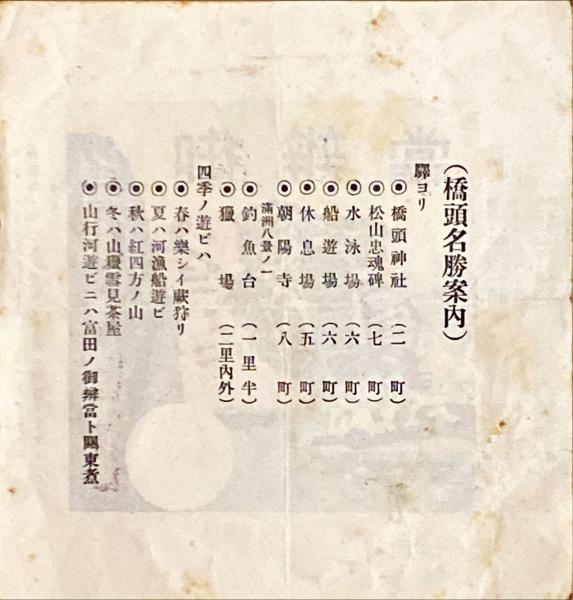 (橋頭名勝案內)
驛ヨリ
◉橋頭神社(二町)
◉松山忠魂碑(七町)
◉水泳場(六町)
◉船遊場(六町)
◉休息場(五町)
◉朝陽寺(八町)
滿洲八景ノ一
◉釣魚台(一里半)
◉獵場(二里內外)
四季ノ遊ビハ
◉春ハ樂シイ蕨狩リ
◉夏ハ河漁船遊ビ
◉秋ハ紅四方ノ山
◉冬ハ山獵雪見茶屋
◉山行河遊ビニハ富田ノ御辨當ト關東煮